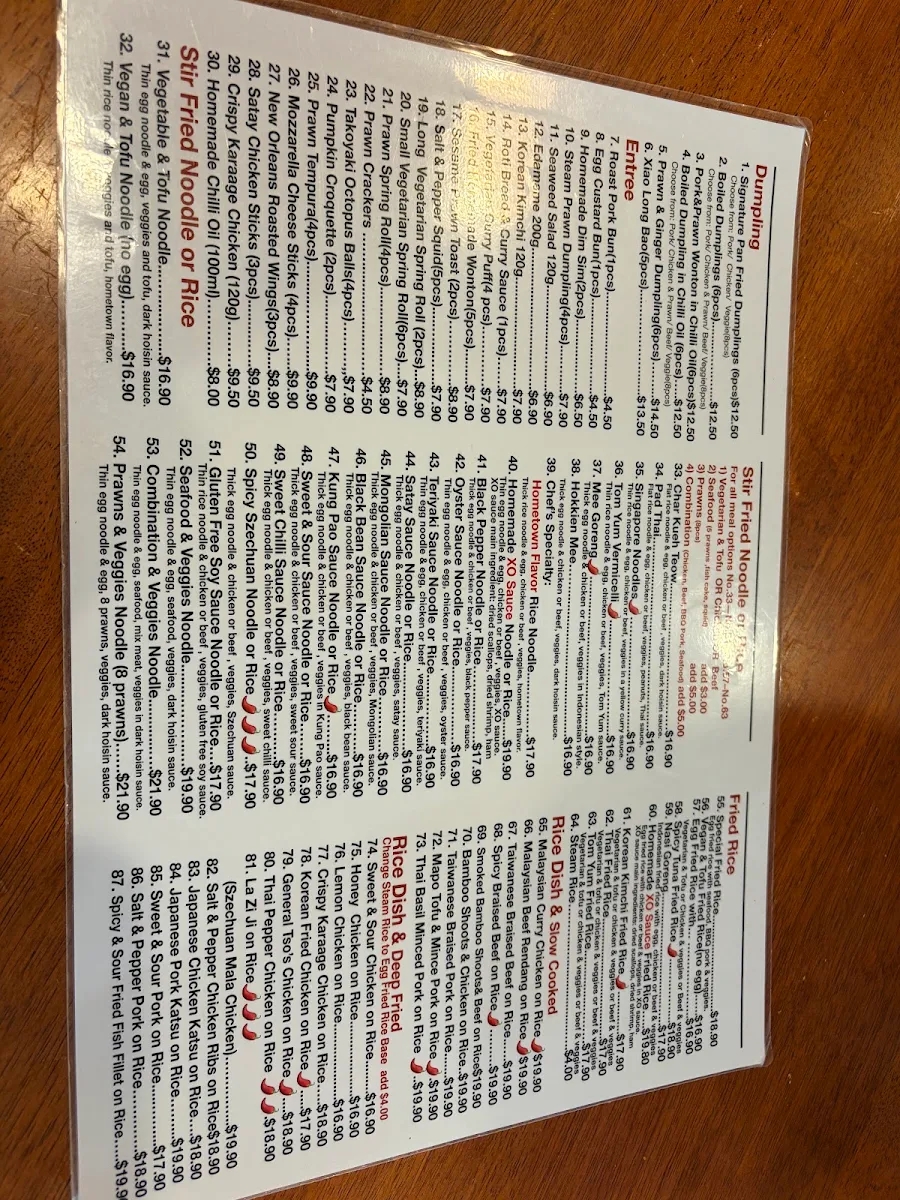 Dumpling
1. Signature Pan Fried Dumplings (6pcs)$12.50
Choose from: Pork/ Chicken/ Veggie(8pcs)
2. Boiled Dumplings (6pcs)............$12.50
Choose from: Pork/ Chicken & Prawn/ Beef/ Veggie(8pcs)
3. Pork&Prawn Wonton in Chilli Oil(6pcs)$12.50
4. Boiled Dumpling in Chilli Oil (6pcs)....$12.50
Choose from: Pork/ Chicken & Prawn/ Beef/ Veggie(8pcs)
5. Prawn & Ginger Dumpling(6pcs).....$14.50
6. Xiao Long Bao(5pcs)..............$13.50
Entree
7. Roast Pork Bun(1pcs)..............$4.50
8. Egg Custard Bun(1pcs)............$4.50
9. Homemade Dim Sim(2pcs)........$6.50
10. Steam Prawn Dumpling(4pcs)....$7.90
11. Seaweed Salad 120g...............$6.90
12. Edamame 200g....................$6.90
13. Korean Kimchi 120g..............$7.90
14. Roti Bread & Curry Sauce (1pcs) .....$7.90
15. Vegetarian Curry Puff(4 pcs).......$7.90
16. Fried Homemade Wonton(5pcs)......$7.90
17. Sessame Prawn Toast (2pcs)......$8.90
18. Salt & Pepper Squid(5pcs)........$7.90
19. Long Vegetarian Spring Roll (2pcs)...$8.90
20. Small Vegetarian Spring Roll(6pcs)..$7.90
21. Prawn Spring Roll(4pcs)..........$8.90
22. Prawn Crackers ..................$4.50
23. Takoyaki Octopus Balls(4pcs)......$7.90
24. Pumpkin Croquette (2pcs).........$7.90
25. Prawn Tempura(4pcs).............$9.90
26. Mozzarella Cheese Sticks (4pcs)....$9.90
27. New Orleans Roasted Wings(3pcs)..$8.90
28. Satay Chicken Sticks (3pcs).......$9.50
29. Crispy Karaage Chicken (120g).....$9.50
30. Homemade Chilli Oil (100ml).......$8.00
Stir Fried Noodle or Rice
31. Vegetable & Tofu Noodle............$16.90
Thin egg noodle & egg, veggies and tofu, dark hoisin sauce.
32. Vegan & Tofu Noodle (no egg)........$16.90
Thin rice noodle, veggies and tofu, hometown flavor.
Stir Fried Noodle or Rice
For all meal options No.33
1) Vegetarian & Tofu OR Chic OR Beef
2) Seafood (5 prawns ,fish cake, squid) add $3.00
3) Prawns (8pcs) add $5.00
4) Combination (Chicken, Beef, BBQ Pork, Seafood) add $5.00
33. Char Kueh Teow..................$16.90
Flat rice noodle & egg, chicken or beef , veggies, dark hoisin sauce.
34. Pad Thai........................$16.90
Flat rice noodle & egg, chicken or beef, veggies, peanuts, Thai sauce.
35. Singapore Noodles...............$16.90
Thin rice noodle & egg, chicken or beef, veggies in a yellow curry sauce.
36. Tom Yum Vermicelli..............$16.90
Thin rice noodle & egg, chicken or beef, veggies, Tom Yum sauce.
37. Mee Goreng......................$16.90
Thick egg noodle & chicken or beef, veggies in Indonesian style.
38. Hokkien Mee.....................$16.90
Thick egg noodle & chicken or beef, veggies, dark hoisin sauce.
39. Chef's Specialty:
Hometown Flavor Rice Noodle......$17.90
Thick rice noodle & egg, chicken or beef , veggies, hometown flavor.
40. Homemade XO Sauce Noodle or Rice...$19.90
Thin egg noodle & egg, chicken or beef , veggies, XO sauce.
XO sauce main ingredient: dried scallops, dried shrimp, ham
41. Black Pepper Noodle or Rice.......$17.90
Thin egg noodle & egg, chicken or beef , veggies, black pepper sauce.
42. Oyster Sauce Noodle or Rice.......$16.90
Thin egg noodle & egg, chicken or beef , veggies, oyster sauce.
43. Teriyaki Sauce Noodle or Rice......$16.90
Thin egg noodle & egg, chicken or beef , veggies, teriyaki sauce.
44. Satay Sauce Noodle or Rice........$16.90
Thick egg noodle & chicken or beef , veggies, satay sauce.
45. Mongolian Sauce Noodle or Rice....$16.90
Thick egg noodle & chicken or beef , veggies, Mongolian sauce.
46. Black Bean Sauce Noodle or Rice....$16.90
Thick egg noodle & chicken or beef , veggies, black bean sauce.
47. Kung Pao Sauce Noodle or Rice....$16.90
Thick egg noodle & chicken or beef , veggies in Kung Pao sauce.
48. Sweet & Sour Sauce Noodle or Rice...$16.90
Thick egg noodle & chicken or beef , veggies, sweet sour sauce.
49. Sweet Chilli Sauce Noodle or Rice....$16.90
Thick egg noodle & chicken or beef , veggies, sweet chilli sauce.
50. Spicy Szechuan Noodle or Rice..$17.90
Thick egg noodle & chicken or beef , veggies, Szechuan sauce.
51. Gluten Free Soy Sauce Noodle or Rice....$17.90
Thin rice noodle & chicken or beef , veggies, gluten free soy sauce.
52. Seafood & Veggies Noodle...........$19.90
Thin egg noodle & egg, seafood, veggies, dark hoisin sauce.
53. Combination & Veggies Noodle........$21.90
Thin egg noodle & egg, seafood, mix meat, veggies in dark hoisin sauce.
54. Prawns & Veggies Noodle (8 prawns).....$21.90
Thin egg noodle & egg, 8 prawns, veggies, dark hoisin sauce.
Fried Rice
55. Special Fried Rice.................$18.90
Egg fried rice with seafood, BBQ pork & veggies.
56. Vegan & Tofu Fried Rice(no egg).....$16.90
57. Egg Fried Rice with................$16.90
Vegetarian & Tofu or Chicken & veggies or Beef & veggies
58. Spicy Tuna Fried Rice............$18.90
59. Nasi Goreng.....................$17.90
Indonesian fried rice with egg, chicken or beef & veggies
60. Homemade XO Sauce Fried Rice.....$19.80
Egg fried rice with chicken or beef & veggies in XO sauce.
XO sauce main ingredients: dried scallops, dried shrimp, ham
61. Korean Kimchi Fried Rice.........$17.90
Vegetarian & tofu or chicken & veggies or beef & veggies
62. Thai Fried Rice...................$17.90
Vegetarian & tofu or chicken & veggies or beef & veggies
63. Tom Yum Fried Rice..............$17.90
Vegetarian & tofu or chicken & veggies or beef & veggies
64. Steam Rice.......................$4.00
Rice Dish & Slow Cooked
65. Malaysian Curry Chicken on Rice $19.90
66. Malaysian Beef Rendang on Rice $19.90
67. Taiwanese Braised Beef on Rice....$19.90
68. Spicy Braised Beef on Rice.......$19.90
69. Smoked Bamboo Shoots& Beef on Rice$19.90
70. Bamboo Shoots & Chicken on Rice..$19.90
71. Taiwanese Braised Pork on Rice....$19.90
72. Mapo Tofu & Mince Pork on Rice..$19.90
73. Thai Basil Minced Pork on Rice...$19.90
Rice Dish & Deep Fried
Change Steam Rice to Egg Fried Rice Base add $4.00
74. Sweet & Sour Chicken on Rice.....$16.90
75. Honey Chicken on Rice............$16.90
76. Lemon Chicken on Rice............$16.90
77. Crispy Karage Chicken on Rice.....$18.90
78. Korean Fried Chicken on Rice.....$17.90
79. General Tso's Chicken on Rice....$18.90
80. Thai Pepper Chicken on Rice..$18.90
81. La Zi Ji on Rice
(Szechuan Mala Chicken)............$19.90
82. Salt & Pepper Chicken Ribs on Rice$18.90
83. Japanese Chicken Katsu on Rice....$18.90
84. Japanese Pork Katsu on Rice.......$19.90
85. Sweet & Sour Pork on Rice.........$17.90
86. Salt & Pepper Pork on Rice.........$18.90
87. Spicy & Sour Fried Fish Fillet on Rice.....$19.90